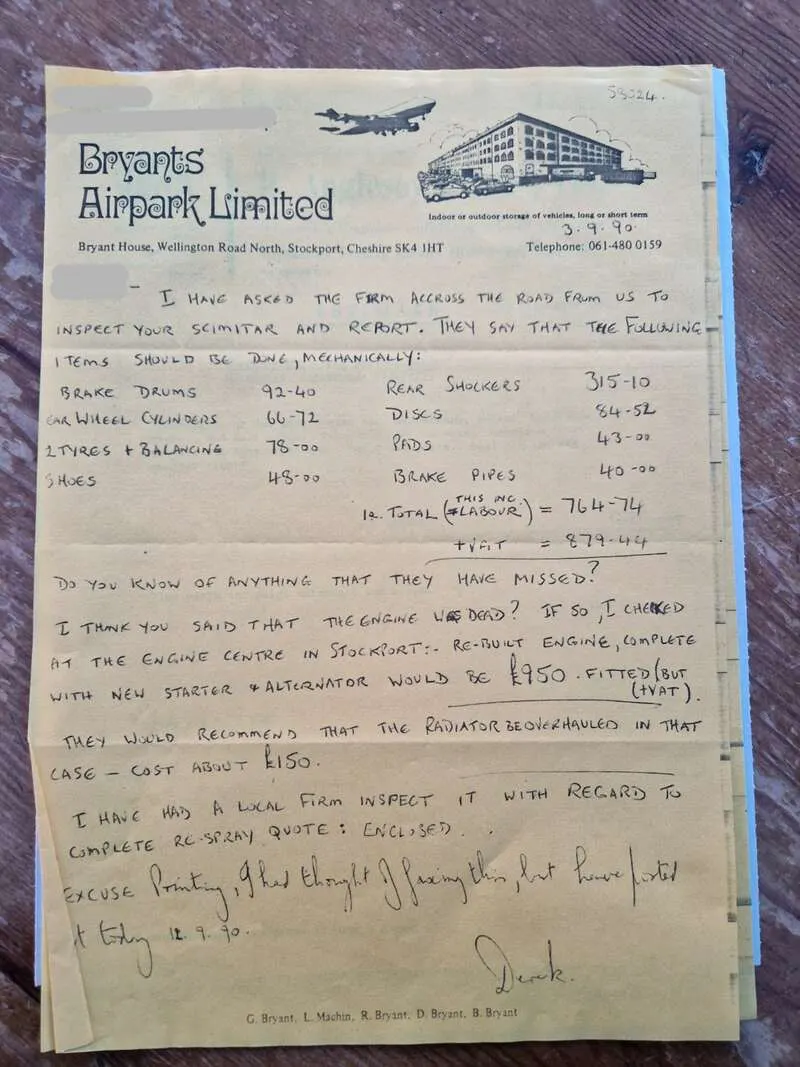 58024.
Bryants
Airpark Limited
Indoor or outdoor storage of vehicles, long or short term
3.9.90.
Bryant House, Wellington Road North, Stockport, Cheshire SK4 1HT
Telephone: 061-480 0159
- I HAVE ASKED THE FIRM ACCROSS THE ROAD FROM US TO
INSPECT YOUR SCIMITAR AND REPORT. THEY SAY THAT THE FOLLOWING
ITEMS SHOULD BE DONE, MECHANICALLY:
BRAKE DRUMS 92-40 REAR SHOCKERS 315-10
EAR WHEEL CYLINDERS 66-72 DISCS 84-52
2 TYRES + BALANCING 78-00 PADS 43-00
SHOES 48-00 BRAKE PIPES 40-00
THIS INC.
TOTAL (LABOUR) = 764-74
+VAT = 879-44
DO YOU KNOW OF ANYTHING THAT THEY HAVE MISSED?
I THINK YOU SAID THAT THE ENGINE WAS DEAD? IF SO, I CHECKED
AT THE ENGINE CENTRE IN STOCKPORT:- RE-BUILT ENGINE, COMPLETE
WITH NEW STARTER & ALTERNATOR WOULD BE £950. FITTED (BUT
(+VAT).
THEY WOULD RECOMMEND THAT THE RADIATOR BE OVERHAULED IN THAT
CASE - COST ABOUT £150.
I HAVE HAD A LOCAL FIRM INSPECT IT WITH REGARD TO
COMPLETE RE-SPRAY QUOTE: ENCLOSED.
EXCUSE Printing, I had thought of faxing this, but have posted
it today 12.9.90.
Derek.
G. Bryant, L. Machin, R. Bryant, D. Bryant, B. Bryant